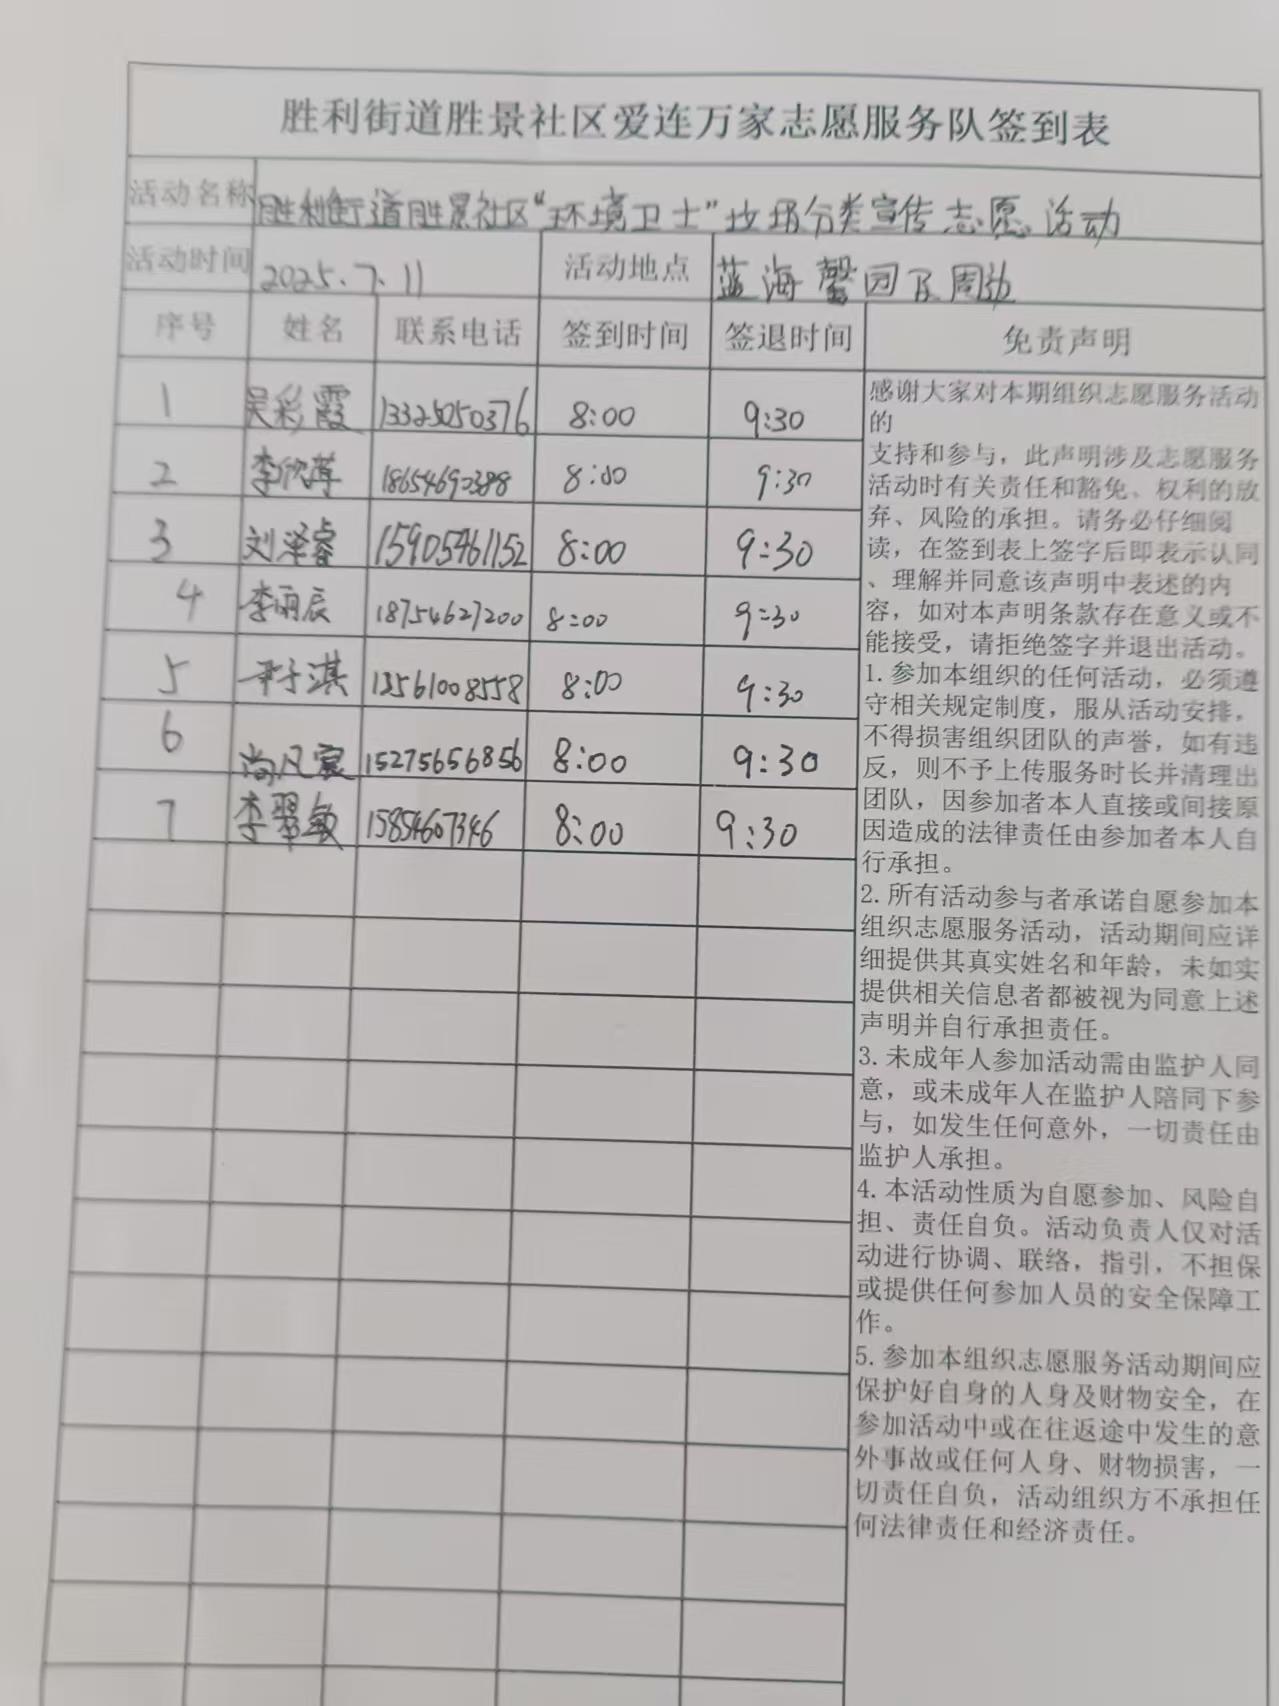 胜利街道胜景社区爱连万家志愿服务队签到表
活动名称 胜利街道胜景社区“环境卫士”垃圾分类宣传志愿活动
活动时间 2025.7.11 活动地点 蓝海馨园及周边
序号 姓名 联系电话 签到时间 签退时间 免责声明
1 吴彩霞 13325050376 8:00 9:30
2 李欣 18654690388 8:00 9:30
3 刘泽睿 15905461152 8:00 9:30
4 李雨辰 18754627200 8:00 9:30
5 尹子淇 13561008558 8:00 9:30
6 尚凡宸 15275656856 8:00 9:30
7 李翠敏 15854607346 8:00 9:30
感谢大家对本期组织志愿服务活动
的
支持和参与，此声明涉及志愿服务
活动时有关责任和豁免、权利的放
弃、风险的承担。请务必仔细阅
读，在签到表上签字后即表示认同
、理解并同意该声明中表述的内
容，如对本声明条款存在意义或不
能接受，请拒绝签字并退出活动。
1.参加本组织的任何活动，必须遵
守相关规定制度，服从活动安排，
不得损害组织团队的声誉，如有违
反，则不予上传服务时长并清理出
团队，因参加者本人直接或间接原
因造成的法律责任由参加者本人自
行承担。
2.所有活动参与者承诺自愿参加本
组织志愿服务活动，活动期间应详
细提供其真实姓名和年龄，未如实
提供相关信息者都被视为同意上述
声明并自行承担责任。
3.未成年人参加活动需由监护人同
意，或未成年人在监护人陪同下参
与，如发生任何意外，一切责任由
监护人承担。
4.本活动性质为自愿参加、风险自
担、责任自负。活动负责人仅对活
动进行协调、联络，指引，不担保
或提供任何参加人员的安全保障工
作。
5.参加本组织志愿服务活动期间应
保护好自身的人身及财物安全，在
参加活动中或在往返途中发生的意
外事故或任何人身、财物损害，一
切责任自负，活动组织方不承担任
何法律责任和经济责任。